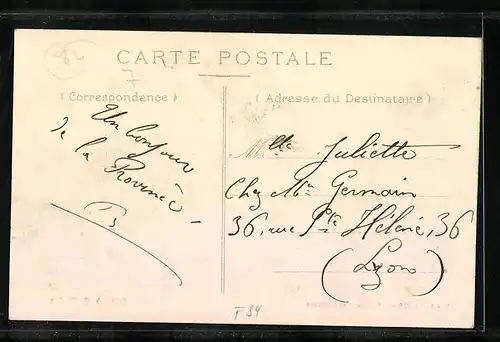 84
CARTE POSTALE
7
(Correspondance)
(Adresse du Destinataire)
Un bonjour
de la Provence
B
Mlle Juliette
Chez Mr Germain
36, rue Ste Hélène, 36
(Lyon)
F 84